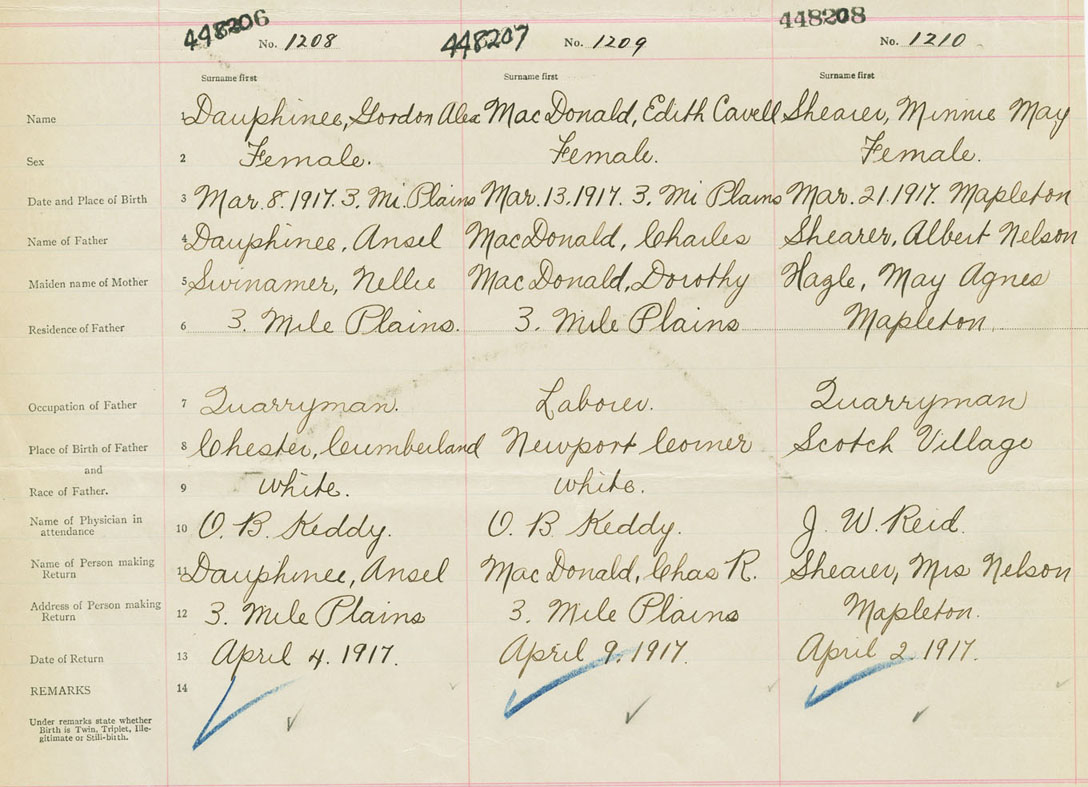 448206 448207 448208
No. 1208 No. 1209 No. 1210
Surname first Surname first Surname first
Name 1 Dauphinee, Gordon Alex MacDonald, Edith Cavell Shearer, Minnie May
Sex 2 Female. Female. Female.
Date and Place of Birth 3 Mar. 8. 1917. 3. Mi. Plains Mar. 13. 1917. 3. Mi Plains Mar. 21. 1917. Mapleton
Name of Father 4 Dauphinee, Ansel MacDonald, Charles Shearer, Albert Nelson
Maiden name of Mother 5 Swinamer, Nellie MacDonald, Dorothy Hagle, May Agnes
Residence of Father 6 3. Mile Plains. 3. Mile Plains Mapleton.
Occupation of Father 7 Quarryman. Laborer. Quarryman
Place of Birth of Father 8 Chester, Cumberland Newport Corner Scotch Village
and
Race of Father. 9 White. White.
Name of Physician in attendance 10 O. B. Keddy. O. B. Keddy. J. W. Reid.
Name of Person making Return 11 Dauphinee, Ansel MacDonald, Chas R. Shearer, Mrs Nelson
Address of Person making Return 12 3. Mile Plains 3. Mile Plains Mapleton.
Date of Return 13 April 4. 1917. April 9. 1917. April 2. 1917.
REMARKS 14
Under remarks state whether
Birth is Twin, Triplet, Ille-
gitimate or Still-birth.